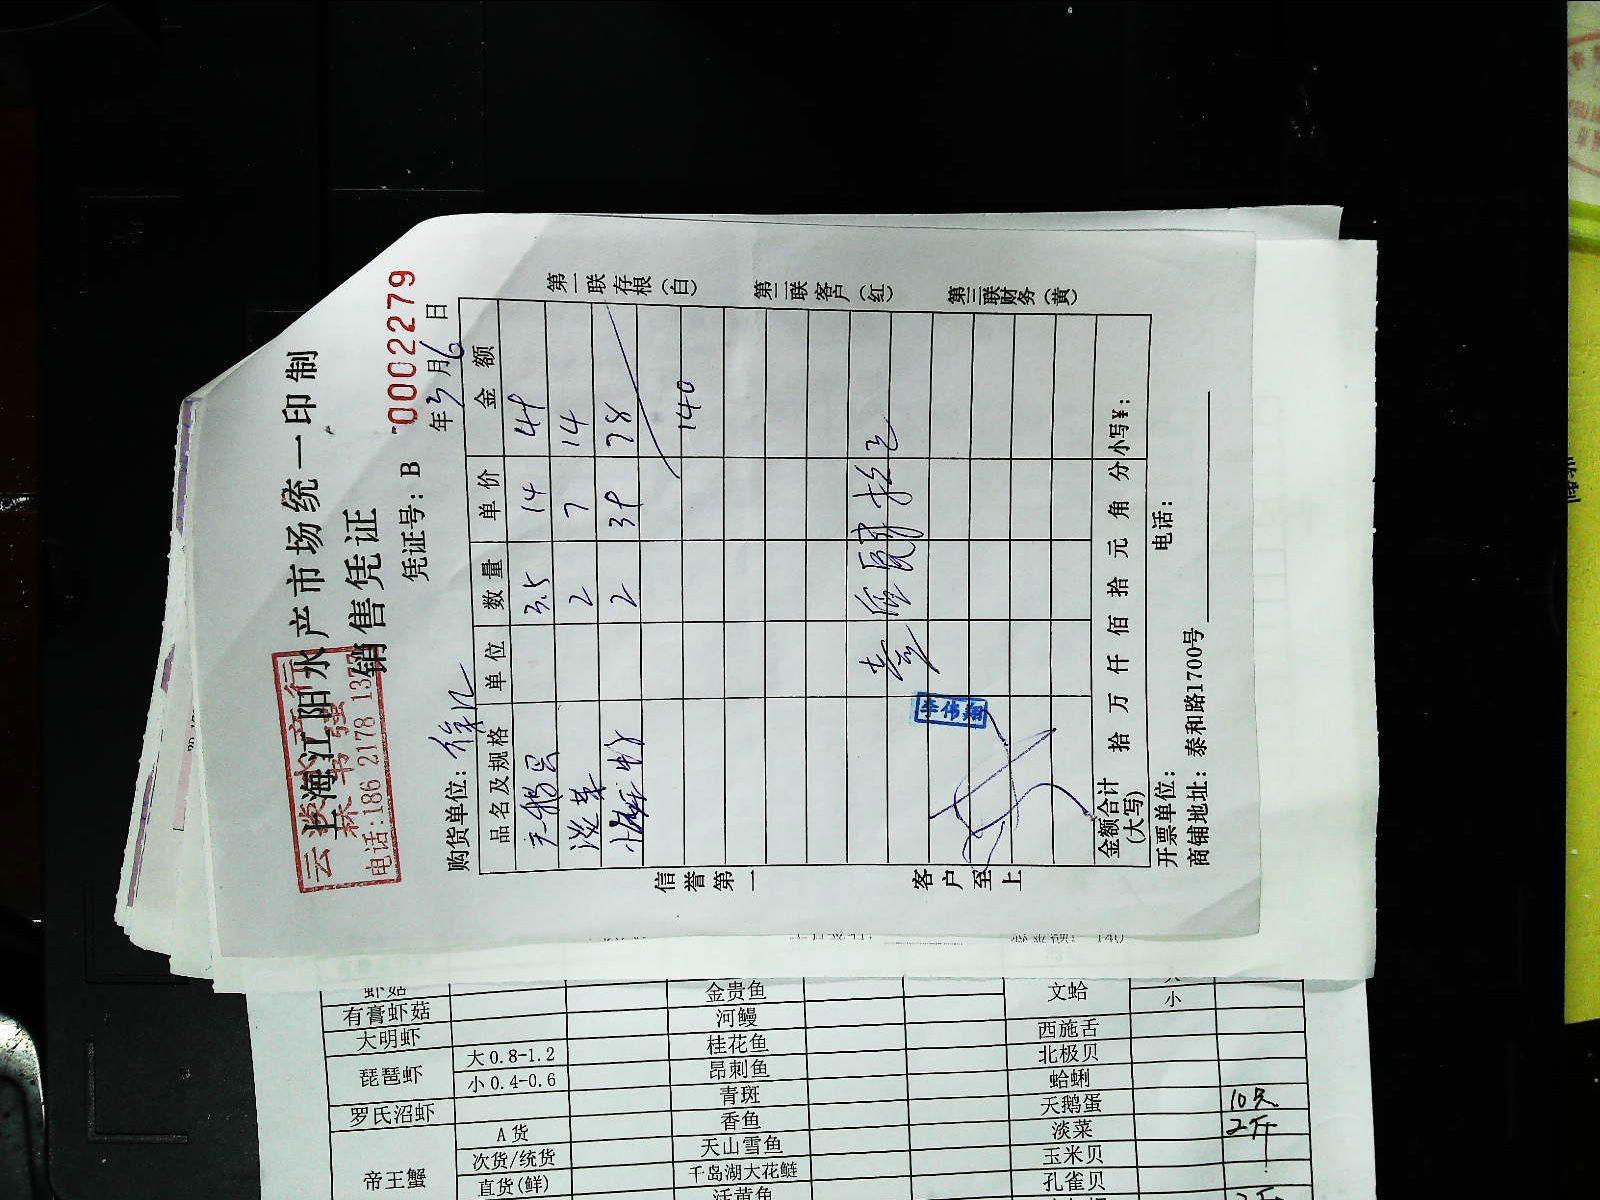 上海江阳水产市场统一印制
销售凭证
云
电话:186 2178 137
凭证号：B 0002279
年3月6日
购货单位：徐汇
品名及规格 单位 数量 单价 金额
天鹅蛋 3.5 14 49
淡菜 2 7 14
2 39 78
140
李伟
金额合计(大写) 拾 万 仟 佰 拾 元 角 分 小写¥：
开票单位： 电话：
商铺地址：泰和路1700号
信誉第一 客户至上
第一联存根(白)
第二联客户(红)
第三联财务(黄)
140
虾菇 金贵鱼 文蛤
小
有膏虾菇 河鳗 西施舌
大明虾 桂花鱼 北极贝
琵琶虾 大0.8-1.2 昂刺鱼 蛤蜊
小0.4-0.6 青斑 天鹅蛋 10只
罗氏沼虾 香鱼 淡菜 2斤
帝王蟹 A货 天山雪鱼 玉米贝
次货/统货 千岛湖大花鲢 孔雀贝
直货(鲜) 活黄鱼